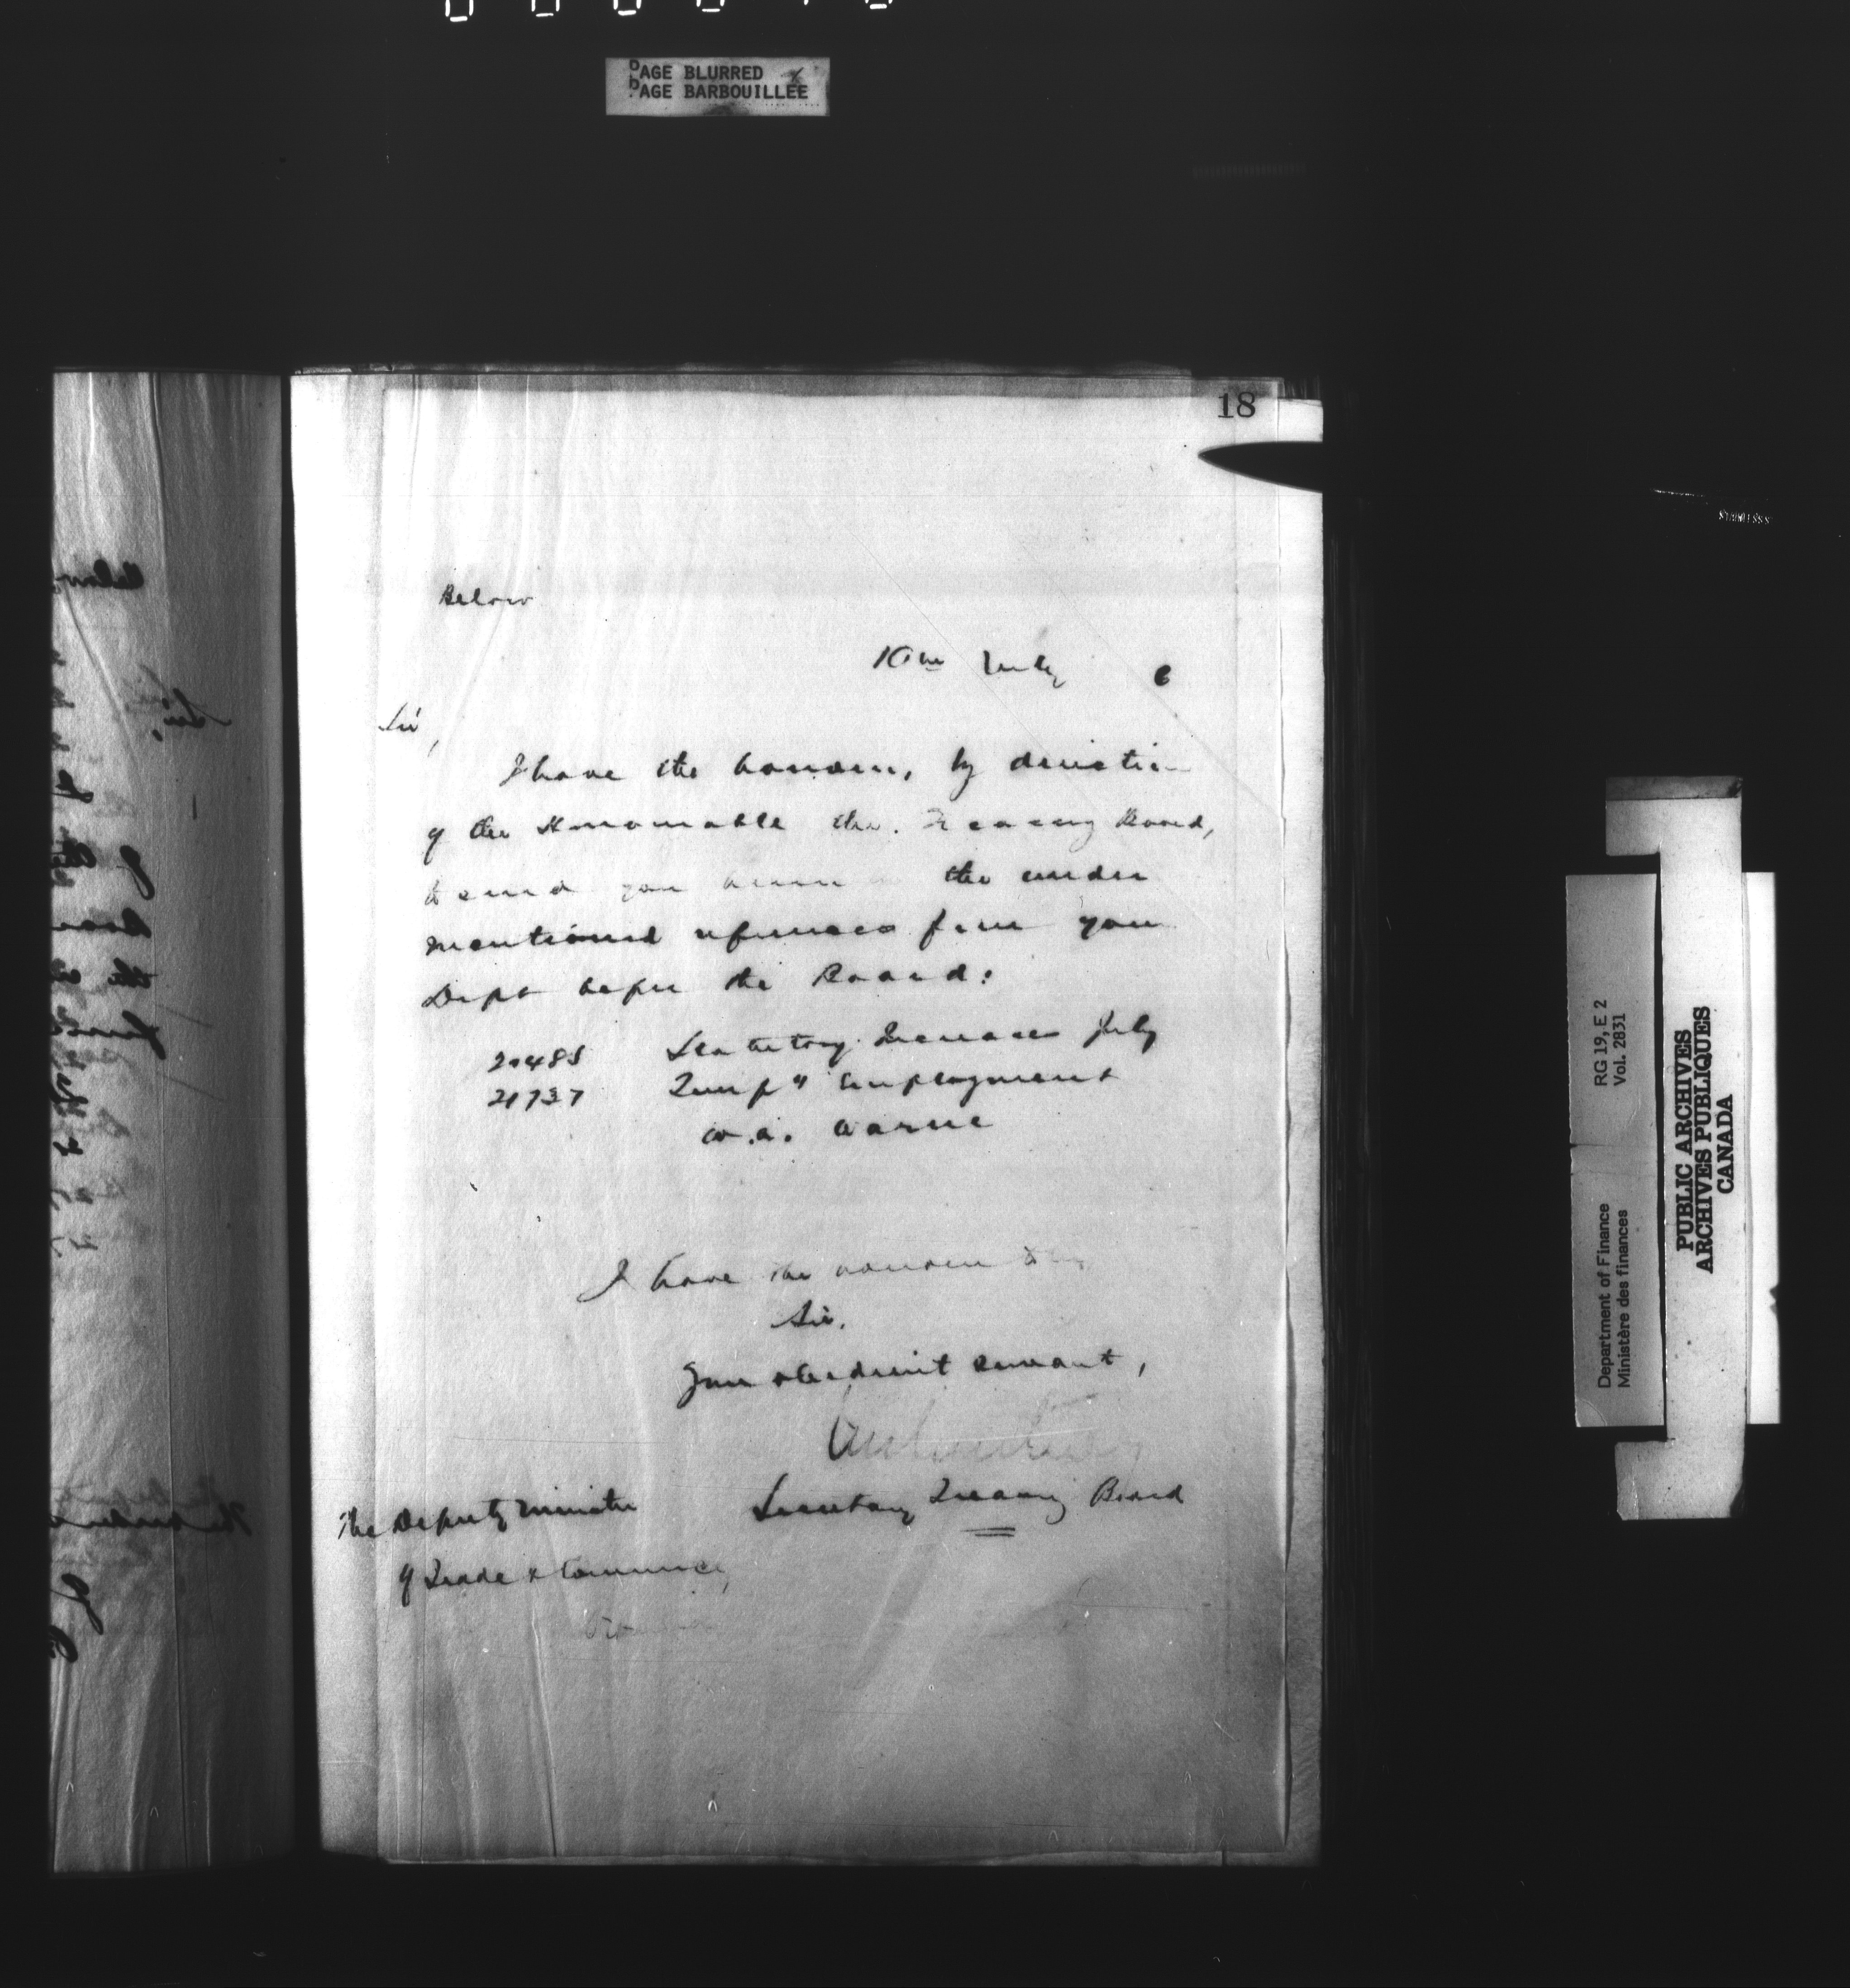 PAGE BLURRED
PAGE BARBOUILLÉE
18
Below
10th July 6
Sir,
I have the honour, by direction
of the Honourable the Treasury Board,
to send you herein the under
mentioned references from your
Dept before the Board:
20485 Statutory Increases July
21737 Temp'y Employment
W.A. Warne
I have the honour to be
Sir,
Your obedient servant,
Secretary Treasury Board
The Deputy Minister
of Trade & Commerce,
Ottawa
RG 19, E 2
Vol. 2831
Department of Finance
Ministère des finances
PUBLIC ARCHIVES
ARCHIVES PUBLIQUES
CANADA